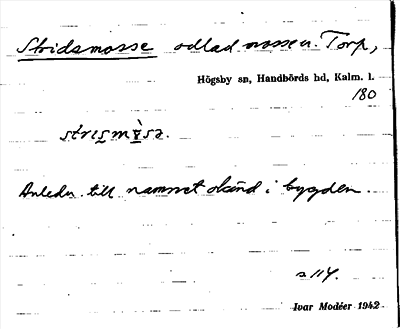 Stridsmosse odlad mosse u. Torp,
Högsby sn, Handbörds hd, Kalm. l.
180
Anledn. till namnet okänd i bygden.
s 114.
Ivar Modéer 1942